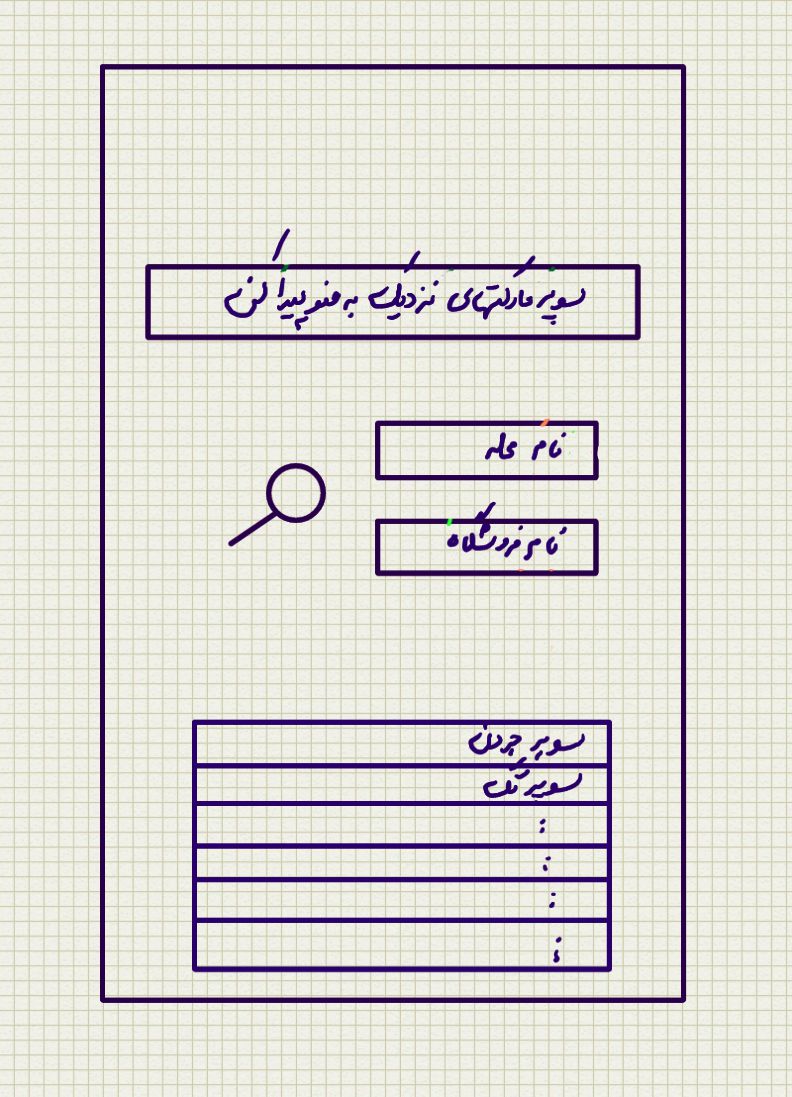 سوپر مارکتهای نزدیک به منو پیدا کن
نام محله
نام فروشگاه
سوپر چردل
سوپر تک
:
:
:
: